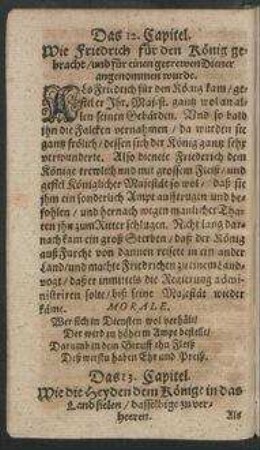 Das 12. Capitel.
Wie Friedrich für den König ge-
bracht / und für einen getrewen Diener
angenommen wurde.
ALs Friedrich für den König kam / ge-
fiel er Ihr. Maj-st. gantz wol an al-
len seinen Gebärden. Und so bald
ihn die Falcken vernahmen / da wurden sie
gantz frölich / dessen sich der König gantz sehr
verwunderte. Also dienete Friederich dem
Könige trewlich und mit grossem Fleiß / und
gefiel Königlicher Majestät so wol / daß sie
ihm ein sonderlich Ampt aufftrugen und be-
fohlen / und hernach wegen manlicher Tha-
ten ihn zum Ritter schlugen. Nicht lang dar-
nach kam ein groß Sterben / daß der König
auß Furcht von dannen reisete in ein ander
Land / und machte Friedrichen zu einem Land-
vogt / daß er immittels die Regierung admi-
nistriren solte / biß seine Majestät wieder
käme. MORALE.
Wer sich in Diensten wol verhält /
Der wird zu höherm Ampt bestellt /
Darumb in dem Beruff thu Fleiß
Deß wirstu haben Ehr und Preiß.
Das 13. Capitel.
Wie die Heyden dem Könige in das
Land fielen / dasselbige zu ver-
heeren. Als